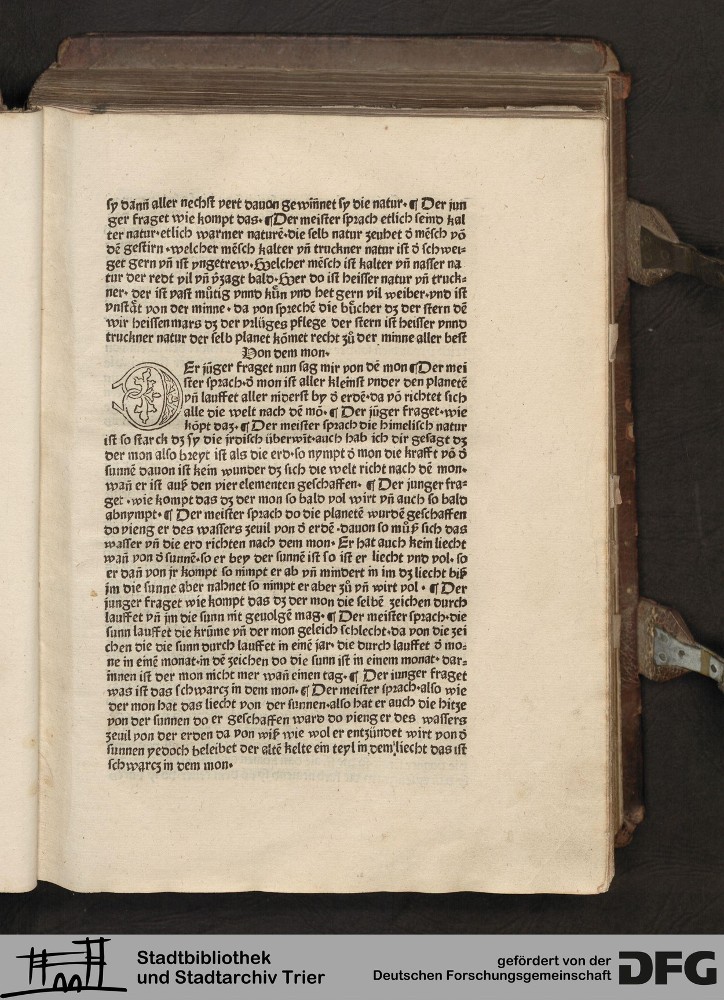 sy dann̄ aller nechst vert dauon gewīnnet sy die natur. ¶ Der jun
ger fraget wie kompt das. ¶ Der meister sprach etlich seind kal
ter natur. etlich warmer naturē. die selb natur zeuhet d̄ mēsch vō
dē gestirn. welcher mēsch kalter vn̄ truckner natur ist d̄ schwei-
get gern vn̄ ist vngetrew. Welcher mēsch ist kalter vn̄ nasser na
tur der redt vil vn̄ v̄zagt bald. Wer do ist heisser natur vn̄ truck=
ner. der ist vast mütig vnnd kün vnd het gern vil weiber. vnd ist
vnstät von der minne. da von sprechē die bücher dz der stern dē
wir heissen mars dz der vrlüges pflege der stern ist heisser vnnd
truckner natur der selb planet kōmet recht zů der minne aller best
Von dem mon.
DEr jūger fraget nun sag mir von dē mon ¶ Der mei
ster sprach. d̄ mon ist aller kleinst vnder den planetē
vn̄ lauffet aller niderst by d̄ erdē. da vō richtet sich
alle die welt nach dē mō. ¶ Der jūger fraget. wie
kōpt daz. ¶ Der meister sprach die himelisch natur
ist so starck dz sy die jrdisch überwīt. auch hab ich dir gesagt dz
der mon also breyt ist als die erd. so nympt d̄ mon die krafft vō d̄
sunnē dauon ist kein wunder dz sich die welt richt nach dē mon.
wan̄ er ist auß den vier elementen geschaffen. ¶ Der junger fra=
get. wie kompt das dz der mon so bald vol wirt vn̄ auch so bald
abnympt. ¶ Der meister sprach do die planetē wurdē geschaffen
do vieng er des wassers zeuil von d̄ erdē. dauon so můß sich das
wasser vn̄ die erd richten nach dem mon. Er hat auch kein liecht
wan̄ von d̄ sunnē. so er bey der sunnē ist so ist er liecht vnd vol. so
er dan̄ von jr kompt so nimpt er ab vn̄ mindert in im dz liecht biß
jm die sunne aber nahnet so nimpt er aber zů vn̄ wirt vol. ¶ Der
junger fraget wie kompt das dz der mon die selbē zeichen durch
lauffet vn̄ jm die sunn nit geuolgē mag. ¶ Der meister sprach. die
sunn lauffet die krūme vn̄ der mon geleich schlecht. da von die zei
chen die die sunn durch lauffet in einē jar. die durch lauffet d̄ mo=
ne in einē monat. in dē zeichen do die sunn ist in einem monat. dar=
innen ist der mon nicht mer wan̄ einen tag. ¶ Der junger fraget
was ist das schwarcz in dem mon. ¶ Der meister sprach. also wie
der mon hat das liecht von der sunnen. also hat er auch die hitze
von der sunnen do er geschaffen ward do vieng er des wassers
zeuil von der erden da von wiß wie wol er entzündet wirt von d̄
sunnen yedoch beleibet der altē kelte ein teyl in dem liecht das ist
schwarcz in dem mon.
Stadtbibliothek
und Stadtarchiv Trier
gefördert von der
Deutschen Forschungsgemeinschaft
DFG